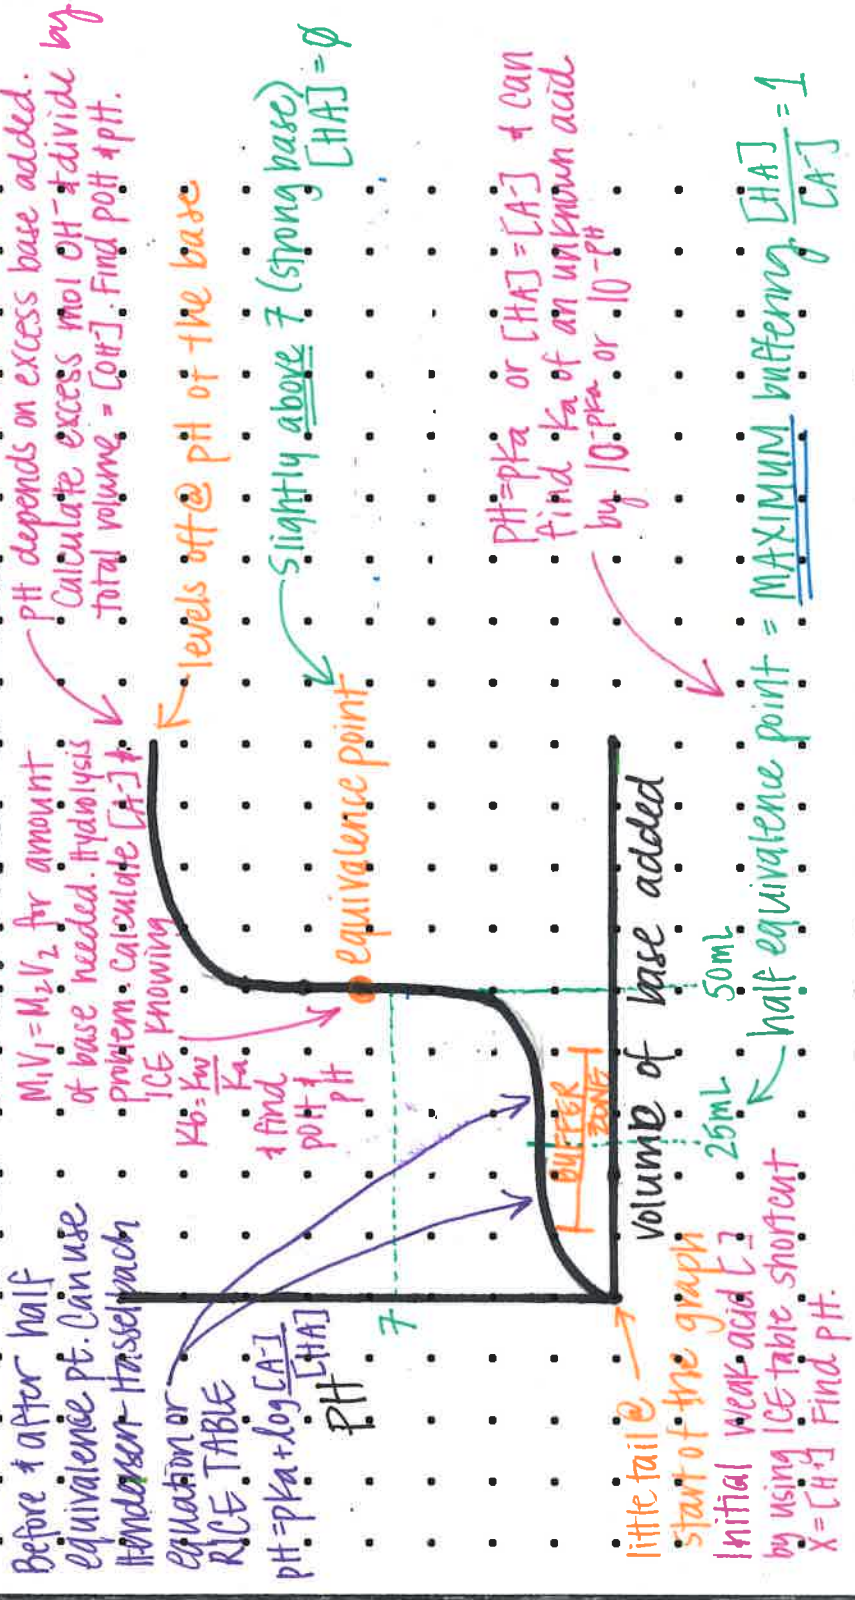 Before & after half
equivalence pt. Can use
Henderson-Hasselbach
equation or
RICE TABLE
pH=pKa+log [A-]
[HA]
M1V1=M2V2 for amount
of base needed. Hydrolysis
problem. Calculate [A-] &
ICE knowing
Kb=Kw
Ka
& find
pOH &
pH
pH depends on excess base added.
Calculate excess mol OH- & divide by
total volume = [OH-]. Find pOH & pH.
levels off @ pH of the base
slightly above 7 (strong base)
[HA] = ∅
equivalence point
pH
7
BUFFER
ZONE
volume of base added
25mL
50mL
pH=pKa or [HA]=[A-] & can
find Ka of an unknown acid
by 10-pKa or 10-pH
half equivalence point = MAXIMUM buffering [HA] = 1
[A-]
little tail @
start of the graph
Initial weak acid [ ]
by using ICE table shortcut
X=[H+] Find pH.